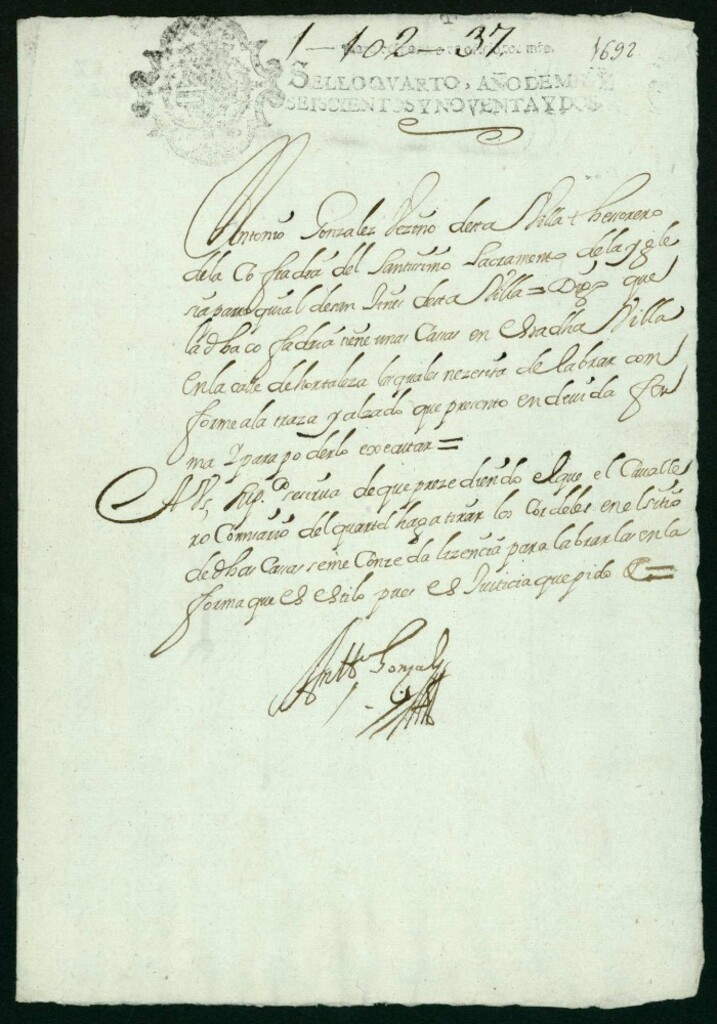 1 — 102 — 37 1692
SELLO QVARTO, AÑO DE MIL Y
SEISCIENTOS Y NOVENTA Y DOS
Antonio Gonzalez Vezino desta Villa thessorero
dela Cofradia del Santissimo Sacramento dela ygle
sia parroquial de san Jines desta Villa = Digo que
la dha cofradia tiene unas Cassas en esta dha Villa
en la calle de hortaleza las quales nezesita de labrar con
forme a la traza y alzado que presento en deuida for
ma Y para poderlo executar =
A Vs Supco se sirua de que prezediendo el que el Cavalle
ro Comisario del quartel haga tirar los Cordeles en el sitio
de dhas Cassas se me Conzeda lizencia para labrarlas en la
forma que es estilo pues es Justicia que pido &=
Antto Gonzalez